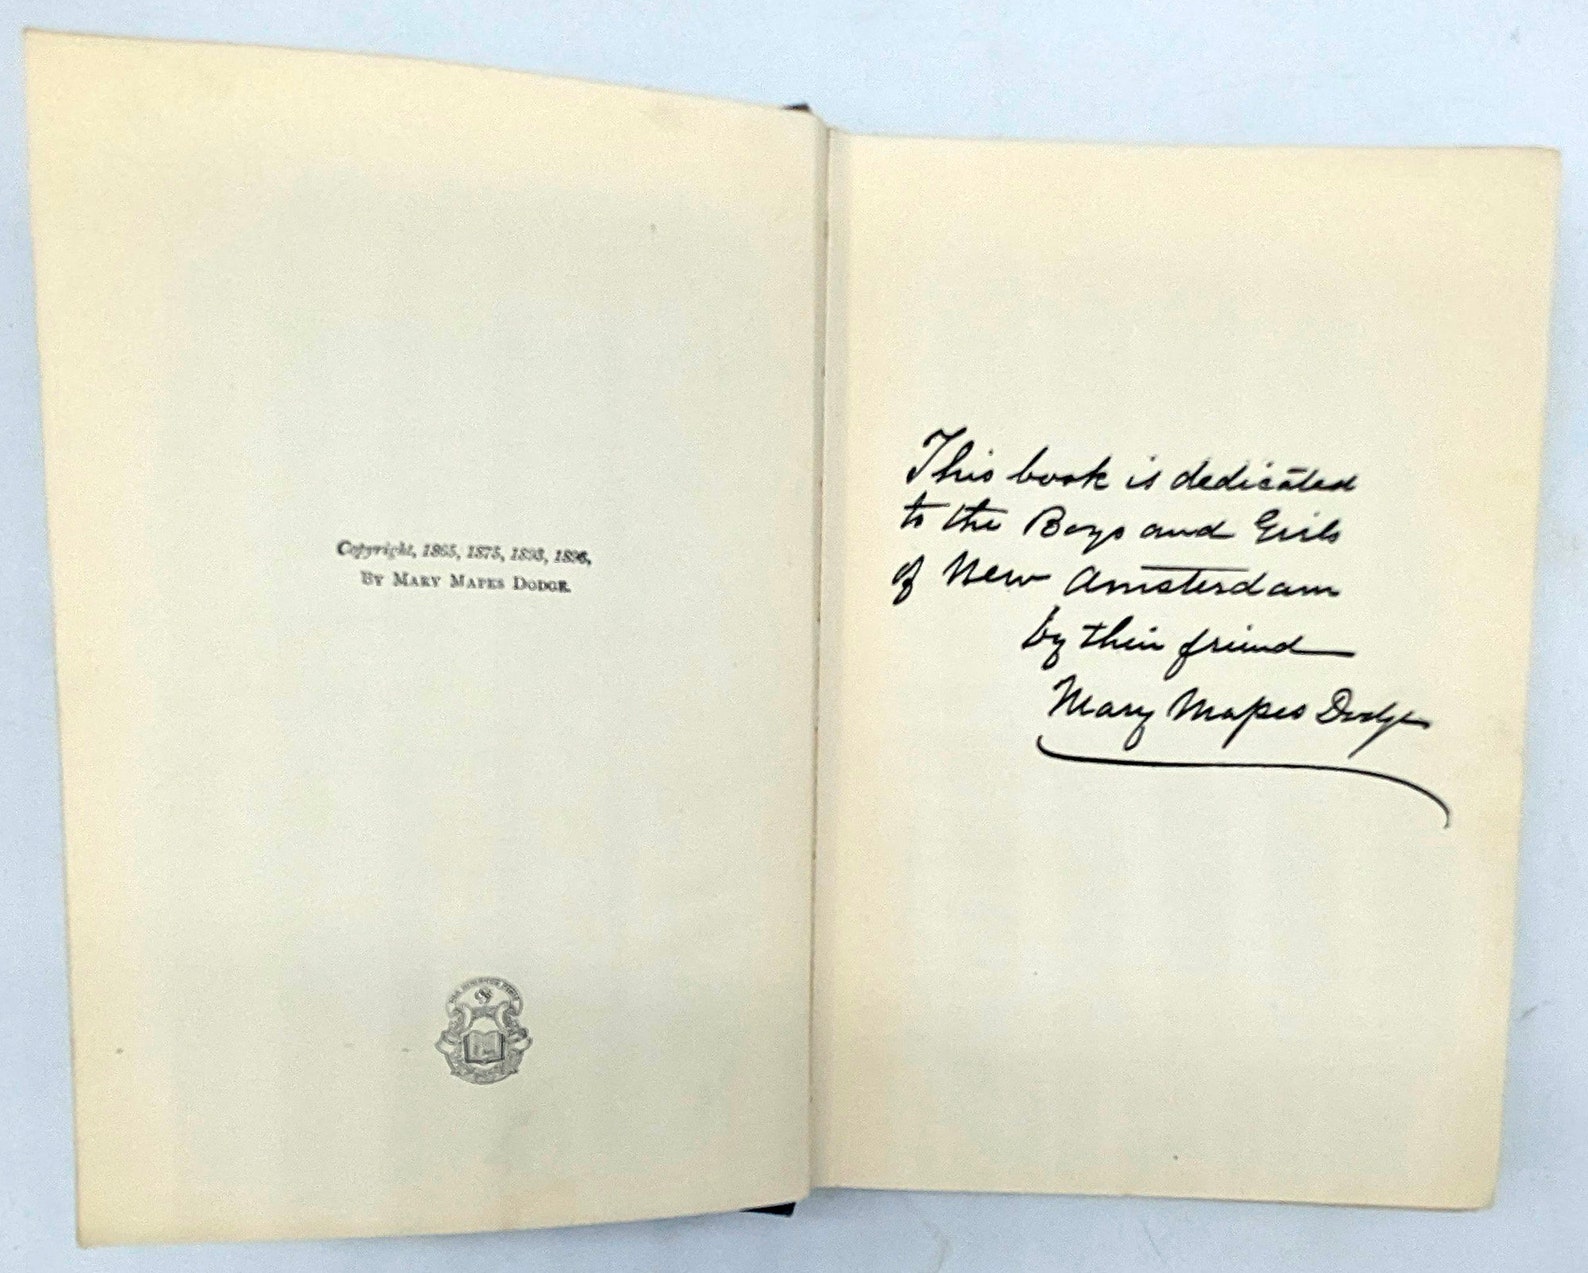 Copyright, 1865, 1875, 1893, 1896,
BY MARY MAPES DODGE.
This book is dedicated
to the Boys and Girls
of New Amsterdam
by their friend
Mary Mapes Dodge